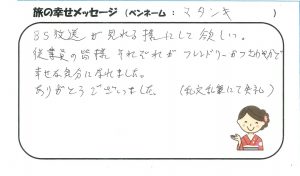 旅の幸せメッセージ (ペンネーム : マタンキ )
BS放送が見れる様にして欲しい。
従業員の皆様 それぞれが フレンドリーかつさわやかで
幸せな気分になれました。
ありがとうございました。 (乱文乱筆にて失礼)